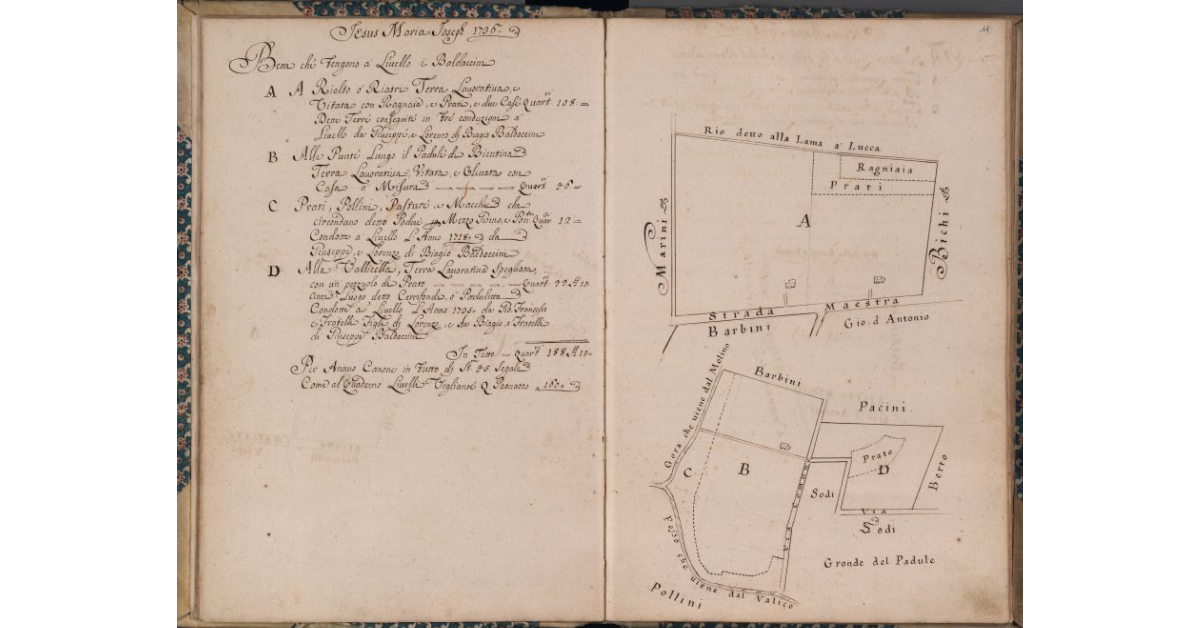 Jesus Maria Joseph 1736.
Beni che Tengono a Livello i Baldaccini
A A Rialto o Riatri Terra Lavorativa, e
Vitata con Ragnaia, e Prati, e due Case Quart 108
Dette Terre conseguite in tre conduzioni a
Livello da Giuseppe, e Lorenzo di Biagio Baldaccini
B Alle Punte Lungo il Padule di Bientina
Terra Lavorativa, Vitata, e Olivata con
Casa a Misura Quart 56
C Prati, Pollini, Pasture, e Macchie che
circondano detto Podere Mezzo Quar 12
Condotti a Livello L'Anno 1718. da
Giuseppe, e Lorenzo di Biagio Baldaccini
D Alla Valbicella, Terra Lavorativa Spogliata,
con un pezzuolo di Prato Quart
Luogo detto o Padulina
Condotti a Livello L'Anno da Francesco
e Fratelli Figli di Lorenzo, e da Biagio, e Fratelli
di Giuseppe Baldaccini
In Tutto Quart 188
Per Annuo Canone in tutto di Segale
Come al Quaderno Livelli Veglianti 160
Rio detto alla Lama a Lucca
Ragniaia
Prati
A
Marini
Bichi
Strada Maestra
Barbini
Gio. d Antonio
Gora che viene dal Molino
Barbini
Pacini
Prato
D
Berto
C
B
Sodi
Via Comune
Via
Sodi
Gronde del Padule
Fosso che viene dal Valico
Pollini